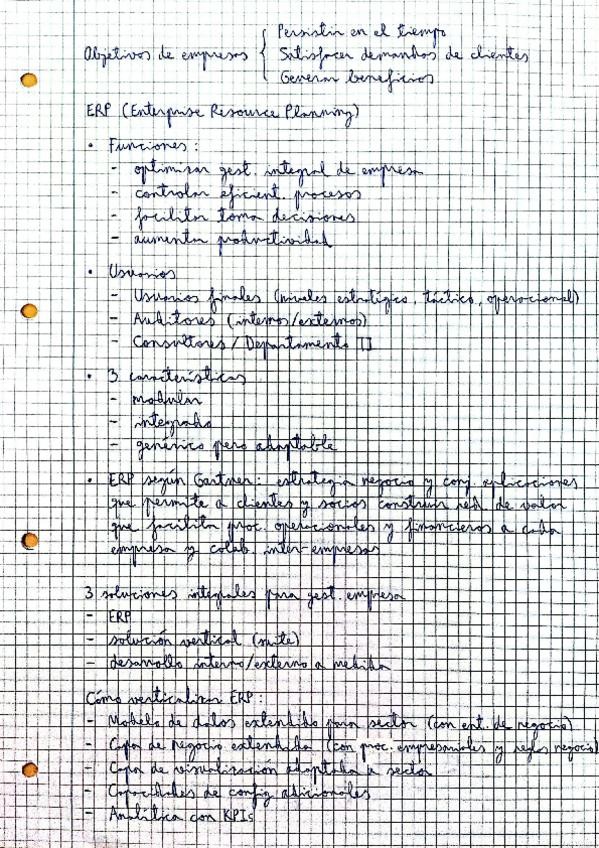 Objetivos de empresas { Persistir en el tiempo
Satisfacer demandas de clientes
Generar beneficios
ERP (Enterprise Resource Planning)
• Funciones:
- optimizar gest. integral de empresa
- controlar eficient. procesos
- facilitar toma decisiones
- aumentar productividad
• Usuarios
- Usuarios finales (niveles estratégico, táctico, operacional)
- Auditores (internos/externos)
- Consultores / Departamento TI
• 3 características
- modular
- integrado
- genérico pero adaptable
• ERP según Gartner: estrategia negocio y conj. aplicaciones
que permite a clientes y socios construir red de valor
que facilita proc. operacionales y financieros a cada
empresa y colab. inter-empresas
3 soluciones integrales para gest. empresa
- ERP
- solución vertical (suite)
- desarrollo interno/externo a medida
Cómo verticalizar ERP:
- Modelo de datos extendido para sector (con ent. de negocio)
- Capa de negocio extendida (con proc. empresariales y reglas negocio)
- Capa de visualización adaptada a sector
- Capacidades de config adicionales
- Analítica con KPIs